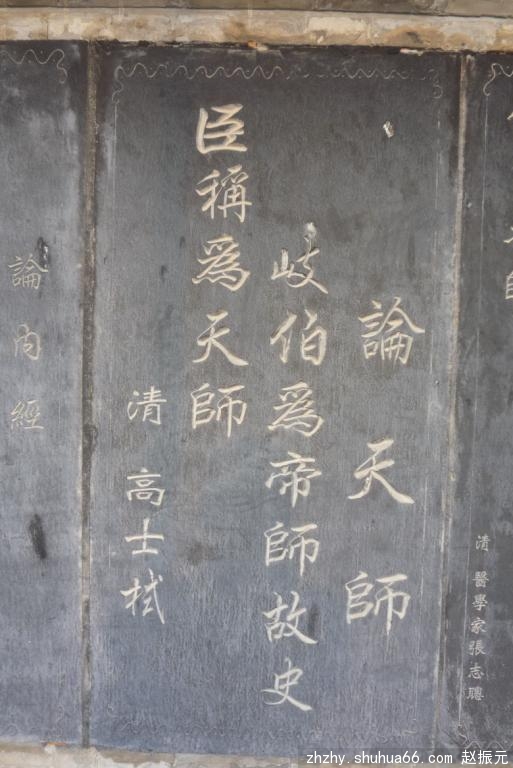 清 醫學家張志聰
論天師
岐伯爲帝師故史
臣稱爲天師
清 高士拭
論内經
zhzhy.shuhua66.com 赵振元